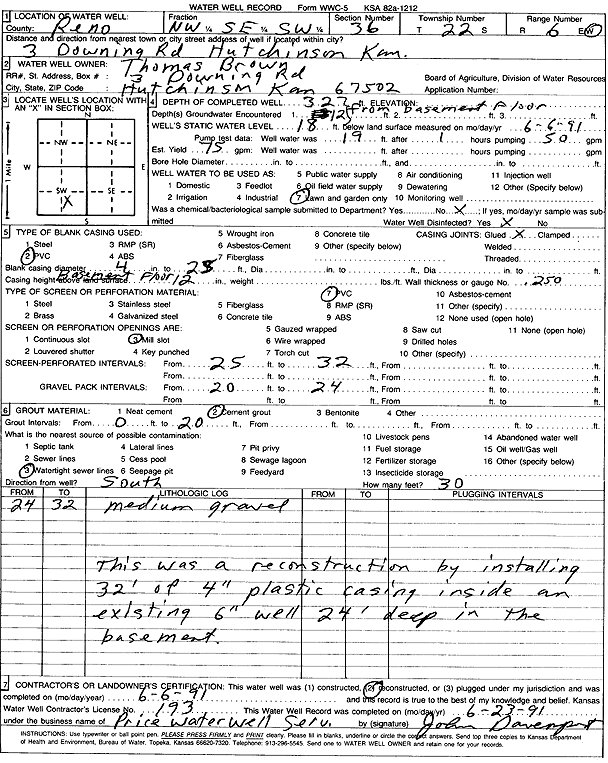 WATER WELL RECORD Form WWC-5 KSA 82a-1212
1 LOCATION OF WATER WELL: Fraction Section Number Township Number Range Number
County: Reno NW ¼ SE ¼ SW ¼ 36 T 22 S R 6 E/W
Distance and direction from nearest town or city street address of well if located within city?
3 Downing Rd Hutchinson Kan.
2 WATER WELL OWNER: Thomas Brown
RR#, St. Address, Box #: 3 Downing Rd Board of Agriculture, Division of Water Resources
City, State, ZIP Code: Hutchinson Kan 67502 Application Number:
3 LOCATE WELL'S LOCATION WITH AN "X" IN SECTION BOX:
N
NW NE
W E
SW SE
X
S
1 Mile
4 DEPTH OF COMPLETED WELL 32 ft. ELEVATION: from Basement Floor
Depth(s) Groundwater Encountered 1. 12 ft. 2. ft. 3. ft.
WELL'S STATIC WATER LEVEL 18 ft. below land surface measured on mo/day/yr 6-6-91
Pump test data: Well water was 19 ft. after 1 hours pumping 50 gpm
Est. Yield 75 gpm: Well water was ft. after hours pumping gpm
Bore Hole Diameter in. to ft., and in. to ft.
WELL WATER TO BE USED AS: 5 Public water supply 8 Air conditioning 11 Injection well
1 Domestic 3 Feedlot 6 Oil field water supply 9 Dewatering 12 Other (Specify below)
2 Irrigation 4 Industrial 7 Lawn and garden only 10 Monitoring well
Was a chemical/bacteriological sample submitted to Department? Yes No X; If yes, mo/day/yr sample was submitted
Water Well Disinfected? Yes X No
5 TYPE OF BLANK CASING USED: 5 Wrought iron 8 Concrete tile CASING JOINTS: Glued X Clamped
1 Steel 3 RMP (SR) 6 Asbestos-Cement 9 Other (specify below) Welded
2 PVC 4 ABS 7 Fiberglass Threaded
Blank casing diameter 4 in. to 25 ft., Dia in. to ft., Dia in. to ft.
Casing height above land surface Basement Floor 12 in., weight lbs./ft. Wall thickness or gauge No. .250
TYPE OF SCREEN OR PERFORATION MATERIAL: 7 PVC 10 Asbestos-cement
1 Steel 3 Stainless steel 5 Fiberglass 8 RMP (SR) 11 Other (specify)
2 Brass 4 Galvanized steel 6 Concrete tile 9 ABS 12 None used (open hole)
SCREEN OR PERFORATION OPENINGS ARE: 5 Gauzed wrapped 8 Saw cut 11 None (open hole)
1 Continuous slot 3 Mill slot 6 Wire wrapped 9 Drilled holes
2 Louvered shutter 4 Key punched 7 Torch cut 10 Other (specify)
SCREEN-PERFORATED INTERVALS: From 25 ft. to 32 ft., From ft. to ft.
From ft. to ft., From ft. to ft.
GRAVEL PACK INTERVALS: From 20 ft. to 24 ft., From ft. to ft.
From ft. to ft., From ft. to ft.
6 GROUT MATERIAL: 1 Neat cement 2 Cement grout 3 Bentonite 4 Other
Grout Intervals: From 0 ft. to 20 ft., From ft. to ft., From ft. to ft.
What is the nearest source of possible contamination: 10 Livestock pens 14 Abandoned water well
1 Septic tank 4 Lateral lines 7 Pit privy 11 Fuel storage 15 Oil well/Gas well
2 Sewer lines 5 Cess pool 8 Sewage lagoon 12 Fertilizer storage 16 Other (specify below)
3 Watertight sewer lines 6 Seepage pit 9 Feedyard 13 Insecticide storage
Direction from well? South How many feet? 30
FROM TO LITHOLOGIC LOG FROM TO PLUGGING INTERVALS
24 32 medium gravel
This was a reconstruction by installing
32' of 4" plastic casing inside an
existing 6" well 24' deep in the
basement.
7 CONTRACTOR'S OR LANDOWNER'S CERTIFICATION: This water well was (1) constructed, (2) reconstructed, or (3) plugged under my jurisdiction and was
completed on (mo/day/year) 6-6-91 and this record is true to the best of my knowledge and belief. Kansas
Water Well Contractor's License No. 193 This Water Well Record was completed on (mo/day/yr) 6-23-91
under the business name of Price Water Well Serv. by (signature) John Davenport
INSTRUCTIONS: Use typewriter or ball point pen. PLEASE PRESS FIRMLY and PRINT clearly. Please fill in blanks, underline or circle the correct answers. Send top three copies to Kansas Department
of Health and Environment, Bureau of Water, Topeka, Kansas 66620-7320. Telephone: 913-296-5545. Send one to WATER WELL OWNER and retain one for your records.